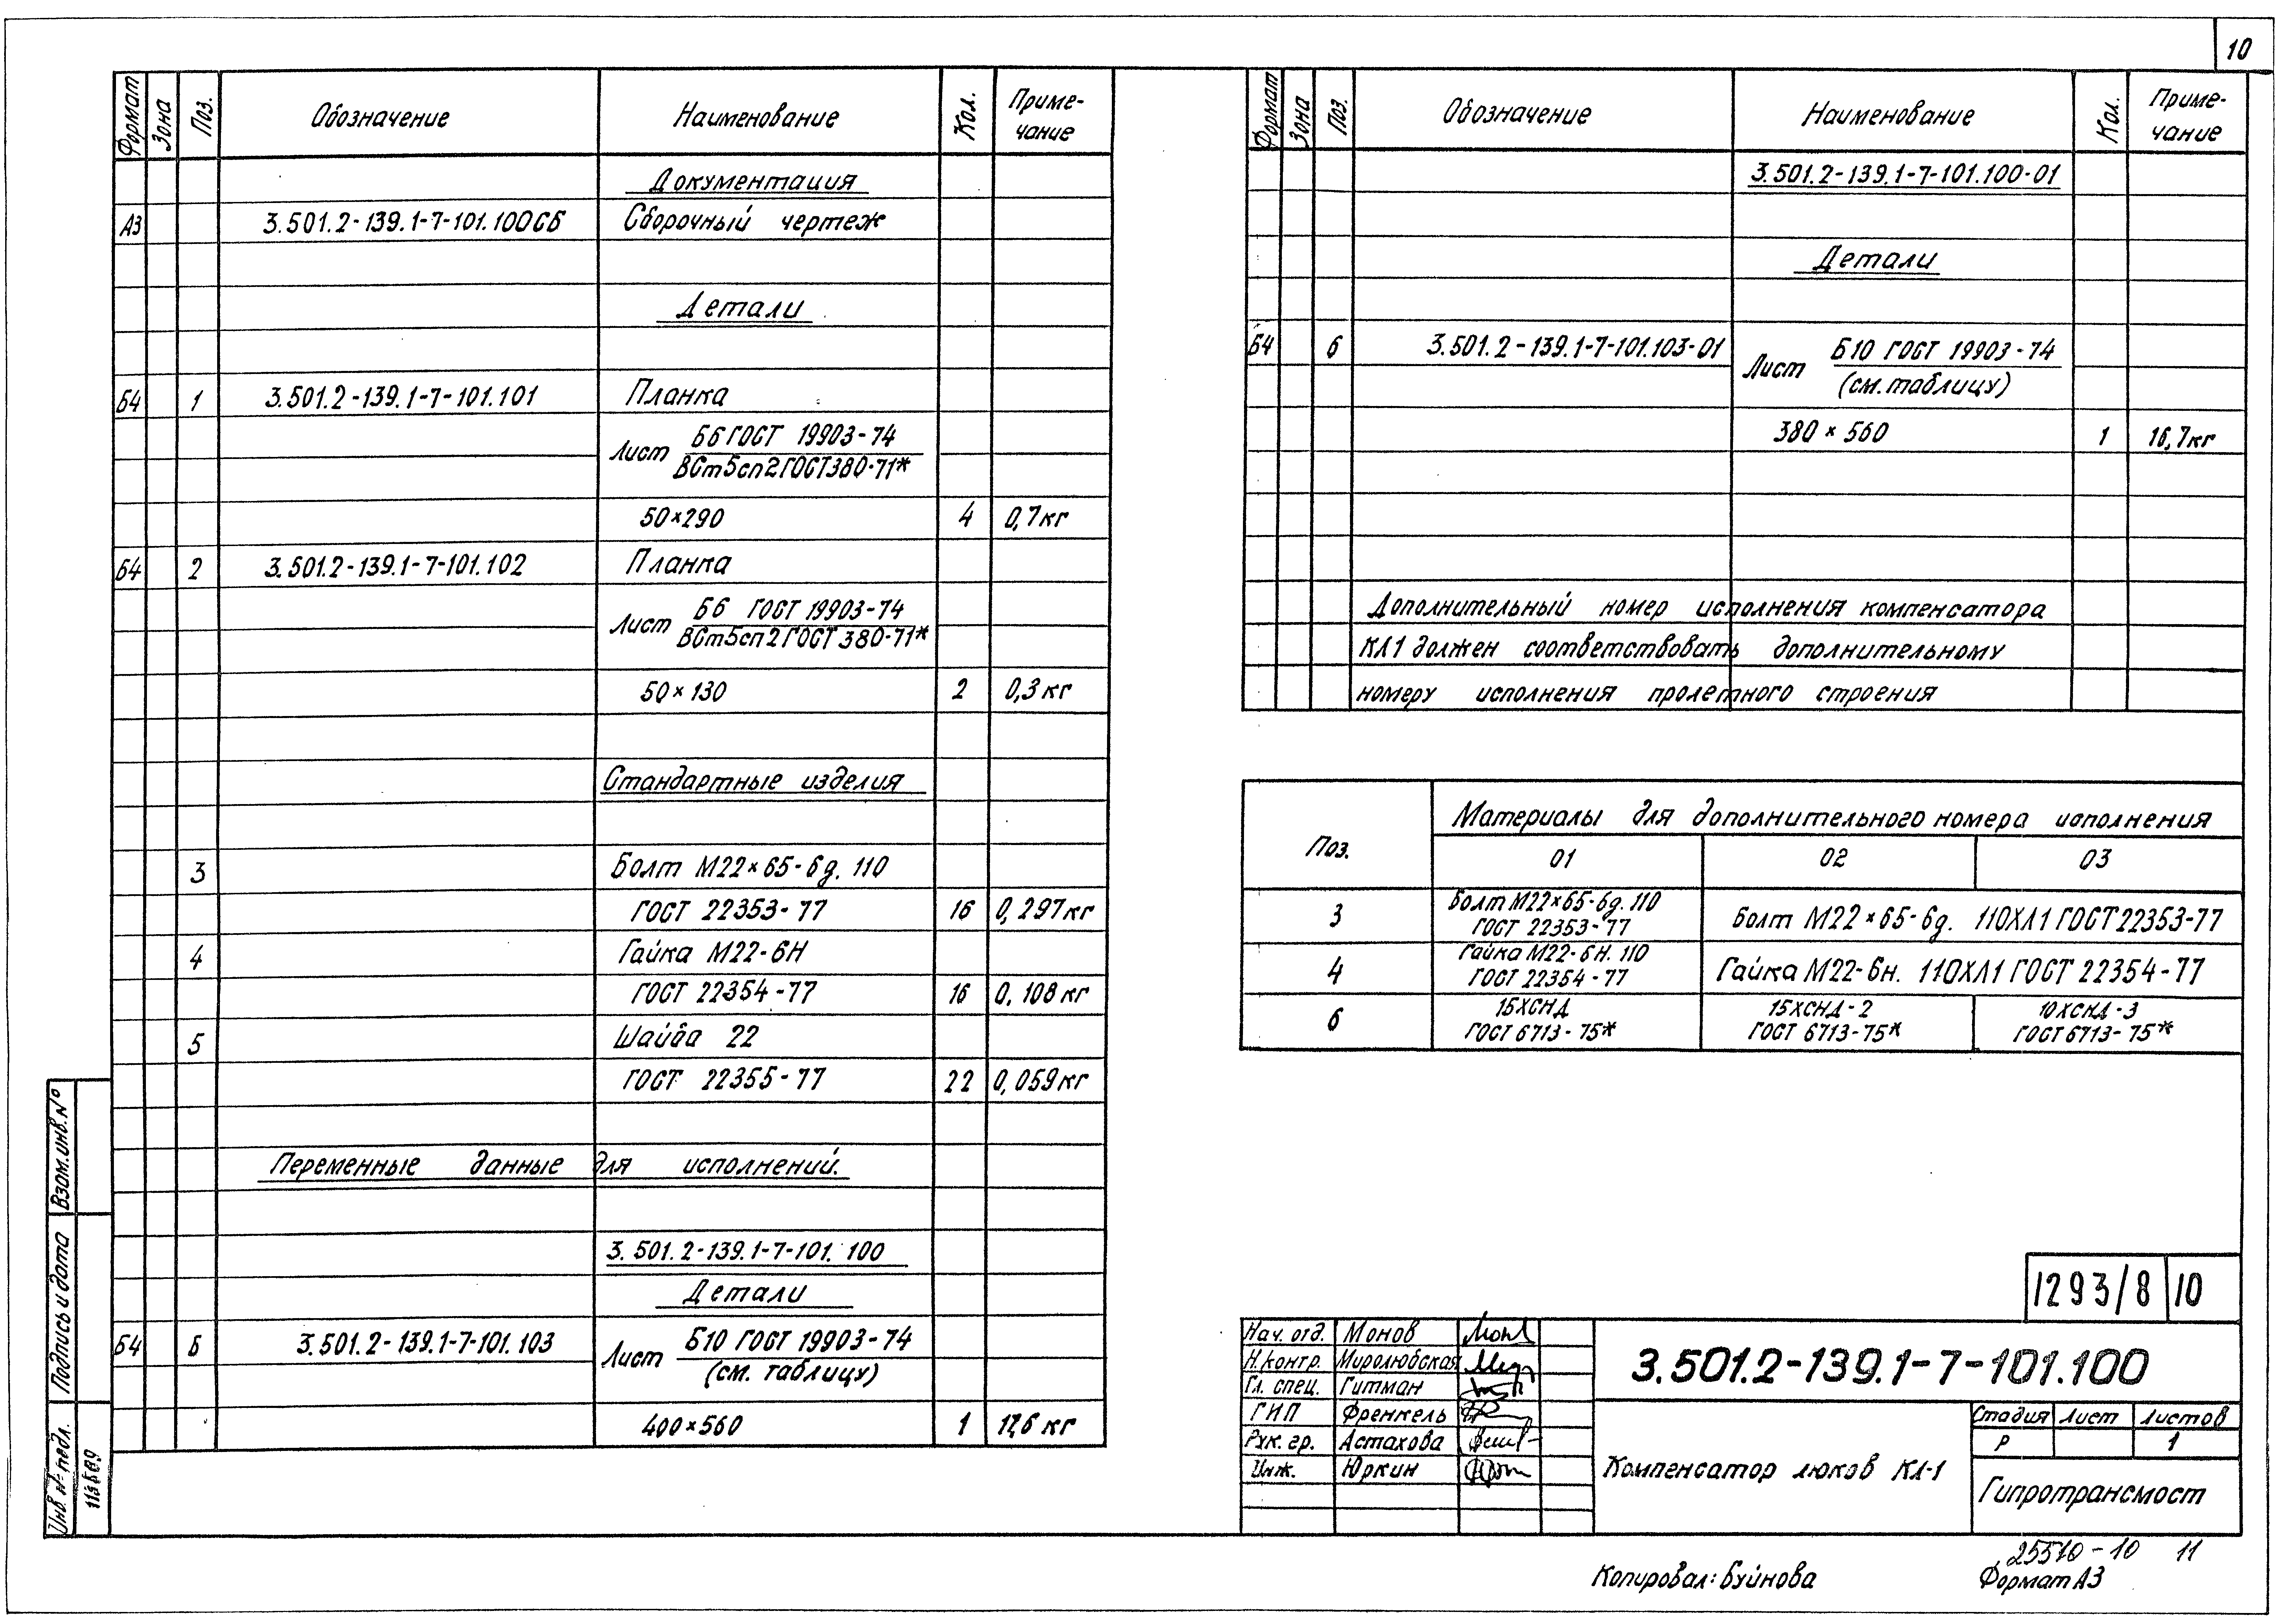 10
Формат Зона Поз. Обозначение Наименование Кол. Приме-
чание
Документация
А3 3.501.2-139.1-7-101.100СБ Сборочный чертеж
Детали
Б4 1 3.501.2-139.1-7-101.101 Планка
Лист Б6 ГОСТ 19903-74
ВСт5сп2 ГОСТ 380-71*
50×290 4 0,7кг
Б4 2 3.501.2-139.1-7-101.102 Планка
Лист Б6 ГОСТ 19903-74
ВСт5сп2 ГОСТ 380-71*
50×130 2 0,3 кг
Стандартные изделия
3 Болт М22×65-6g. 110
ГОСТ 22353-77 16 0,297кг
4 Гайка М22-6Н
ГОСТ 22354-77 16 0,108 кг
5 Шайба 22
ГОСТ 22355-77 22 0,059 кг
Переменные данные для исполнений.
3.501.2-139.1-7-101.100
Детали
Б4 Б 3.501.2-139.1-7-101.103 Лист Б10 ГОСТ 19903-74
(см. таблицу)
400×560 1 17,6 кг
Формат Зона Поз. Обозначение Наименование Кол. Приме-
чание
3.501.2-139.1-7-101.100-01
Детали
Б4 6 3.501.2-139.1-7-101.103-01 Лист Б10 ГОСТ 19903-74
(см. таблицу)
380×560 1 16,7кг
Дополнительный номер исполнения компенсатора
КЛ1 должен соответствовать дополнительному
номеру исполнения пролетного строения
Поз. Материалы для дополнительного номера исполнения
01 02 03
3 Болт М22×65-6g. 110
ГОСТ 22353-77 Болт М22×65-6g. 110ХЛ1 ГОСТ 22353-77
4 Гайка М22-6Н. 110
ГОСТ 22354-77 Гайка М22-6н. 110ХЛ1 ГОСТ 22354-77
6 15ХСНД
ГОСТ 6713-75* 15ХСНД-2
ГОСТ 6713-75* 10ХСНД-3
ГОСТ 6713-75*
1293/8 10
Нач. отд. Монов
Н. контр. Миролюбская
Гл. спец. Гитман
ГИП Френкель
Рук. гр. Астахова
Инж. Юркин
3.501.2-139.1-7-101.100
Компенсатор люков КЛ-1
Стадия Лист Листов
Р 1
Гипротрансмост
Взам.инв.№
Подпись и дата
Инв. № подл.
25510-10 11
Копировал: Буйнова Формат А3